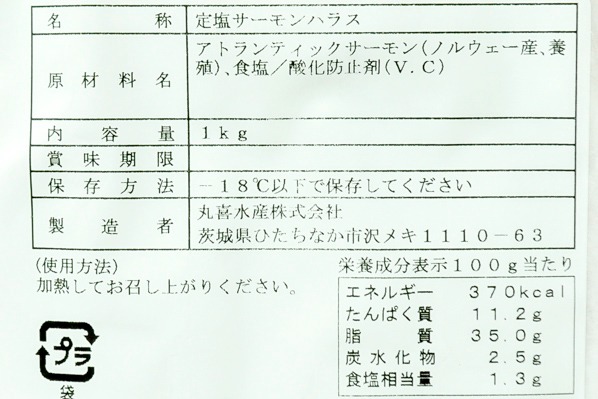 名称 定塩サーモンハラス
原材料名 アトランティックサーモン(ノルウェー産、養
殖)、食塩/酸化防止剤(V.C)
内容量 1kg
賞味期限
保存方法 -18℃以下で保存してください
製造者 丸喜水産株式会社
茨城県ひたちなか市沢メキ1110-63
(使用方法)
加熱してお召し上がりください。
プラ
袋
栄養成分表示100g当たり
エネルギー 370kcal
たんぱく質 11.2g
脂質 35.0g
炭水化物 2.5g
食塩相当量 1.3g